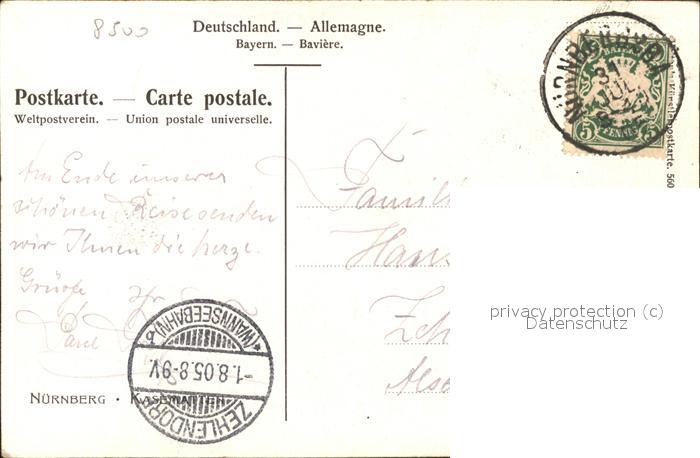 8500
Deutschland. — Allemagne.
Bayern. — Bavière.
Postkarte. — Carte postale.
Weltpostverein. — Union postale universelle.
NÜRNBERG
31 JUL
BAYERN
5 PFENNIG 5
Künstlerpostkarte. 560
Am Ende unserer
schönen Reise senden
wir Ihnen die herzl.
Grüße Ihr
Paul
Famili
Hans
Zeh
Alse
ZEHLENDORF
-1.8.05.8-9V.
*(WANNSEEBAHN)a
NÜRNBERG • KASEMATTEN
privacy protection (c)
Datenschutz